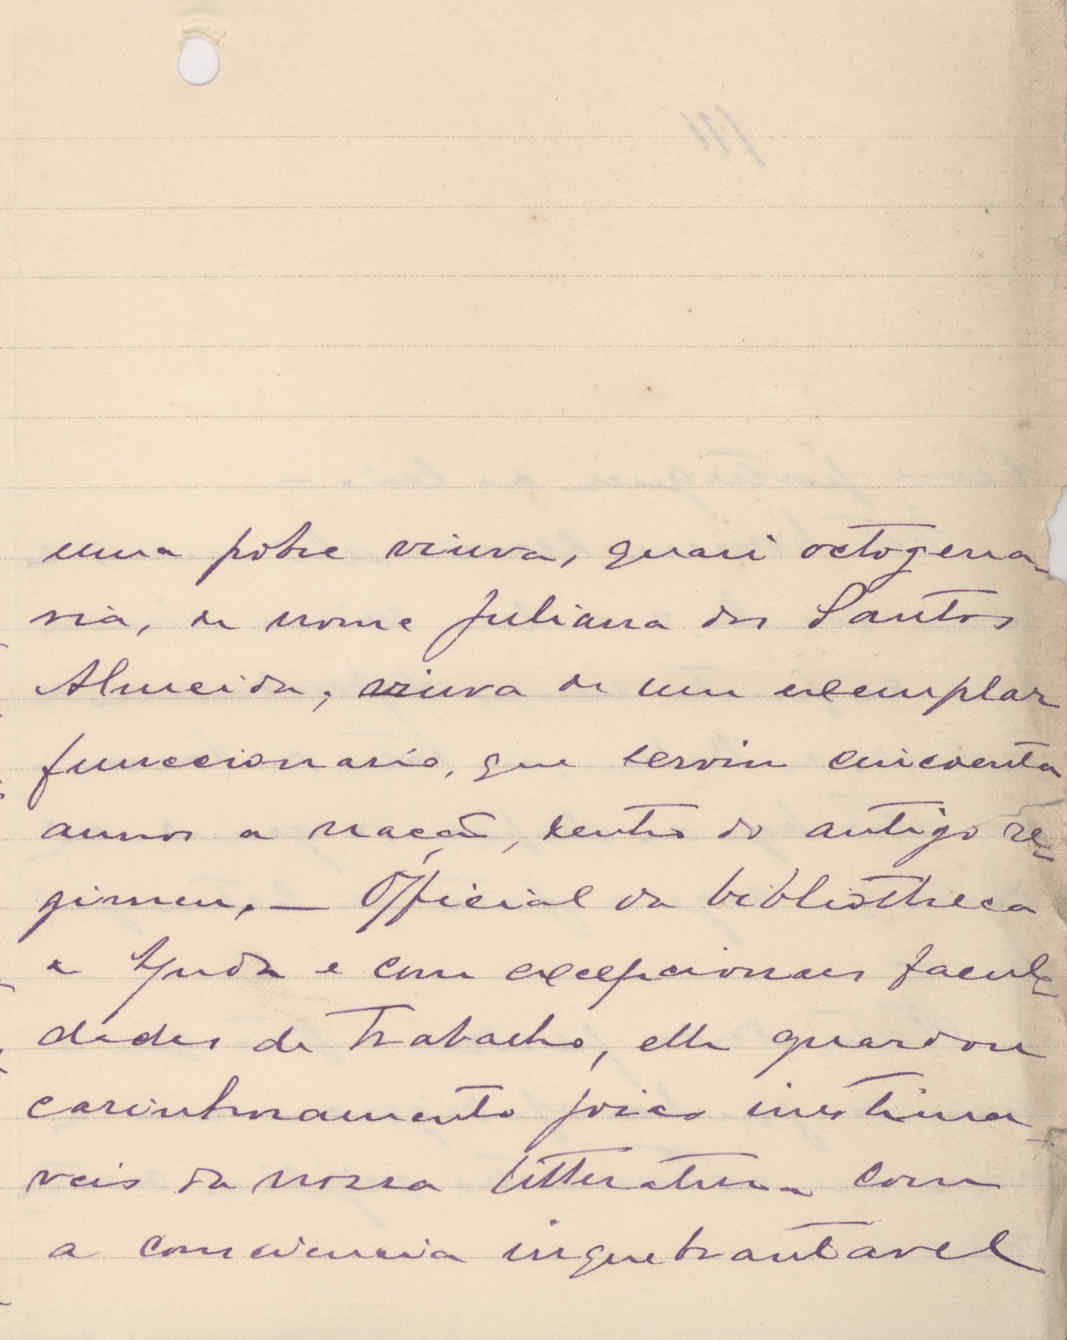 uma pobre viuva, quasi octogena-
ria, de nome Juliana dos Santos
Almeida, viuva de um exemplar
funccionario, que serviu cincoenta
annos a nação, dentro do antigo re-
gimen, — Official da bibliotheca
e Ajuda e com excepcionaes facul-
dades de trabalho, elle guardou
carinhosamente joias inestima-
veis da nossa litteratura com
a consciencia inquebrantavel